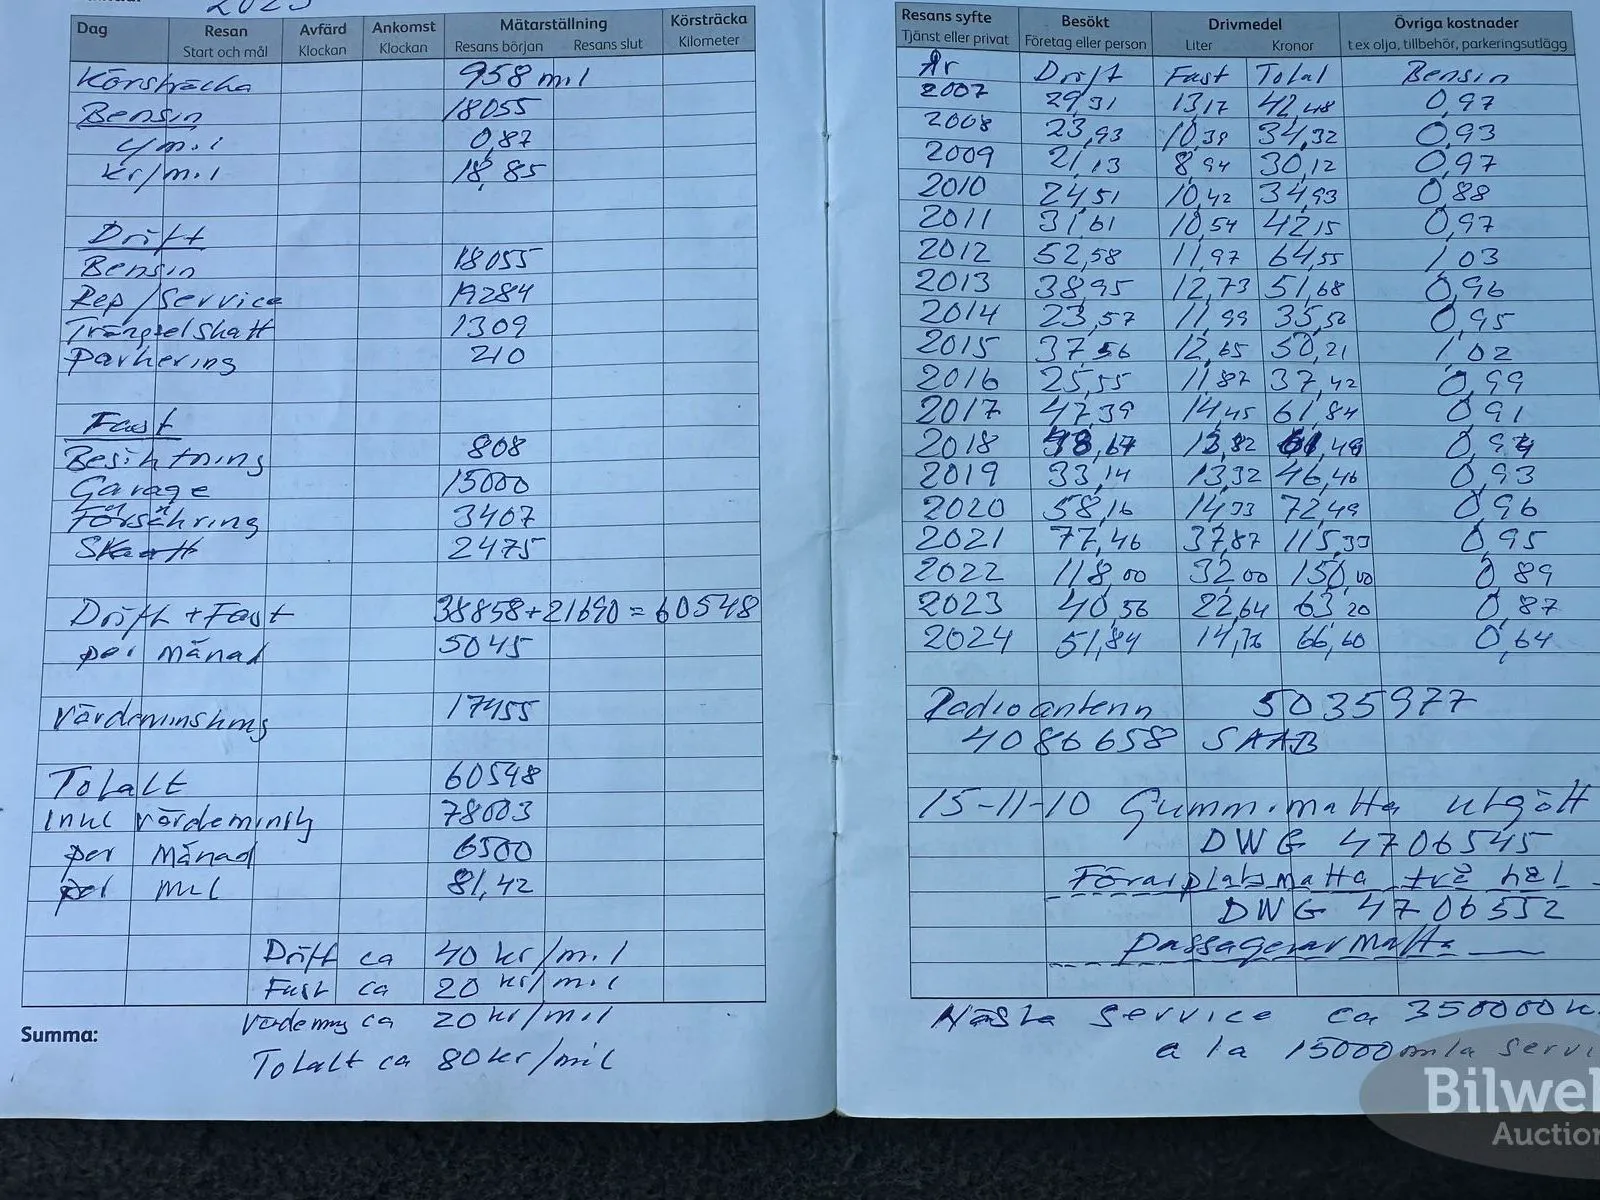 2023
Dag Resan Start och mål Avfärd Klockan Ankomst Klockan Mätarställning Resans början Resans slut Körsträcka Kilometer
Körsträcka 958 mil
Bensin 18055
l/mil 0,87
kr/mil 18,85
Drift
Bensin 18055
Rep/Service 19284
Trängselskatt 1309
Parkering 210
Fast
Besiktning 808
Garage 15000
Försäkring 3407
Skatt 2475
Drift + Fast 38858+21690=60548
per månad 5045
Värdeminskning 17455
Totalt 60548
Inkl värdeminsk 78003
per månad 6500
per mil 81,42
Drift ca 40 kr/mil
Fast ca 20 kr/mil
ca 20 kr/mil
Totalt ca 80 kr/mil
Summa:
Resans syfte Tjänst eller privat Besökt Företag eller person Drivmedel Liter Kronor Övriga kostnader t ex olja, tillbehör, parkeringsutlägg
År Drift Fast Total Bensin
2007 29,31 13,17 42,48 0,97
2008 23,93 10,39 34,32 0,93
2009 21,13 8,94 30,12 0,97
2010 24,51 10,42 34,93 0,88
2011 31,61 10,54 42,15 0,97
2012 52,58 11,97 64,55 1,03
2013 38,95 12,73 51,68 0,96
2014 23,57 11,99 35,56 0,95
2015 37,56 12,65 50,21 1,02
2016 25,55 11,87 37,42 0,99
2017 47,39 14,45 61,84 0,91
2018 ,67 ,82 ,49 0,94
2019 33,14 13,32 46,46 0,93
2020 58,16 14,33 72,49 0,96
2021 77,46 37,87 115,33 0,95
2022 118,00 32,00 150,00 0,89
2023 40,56 22,64 63,20 0,87
2024 51,84 14,76 66,60 0,64
Radioantenn 5035977
4086658 SAAB
15-11-10 Gummimatta utgått
DWG 4706545
Förarplatsmatta två hål
DWG 4706552
passagerarmatta
Nästa service ca 350000 k
a la 15000 mila servi
Bilwe
Auction